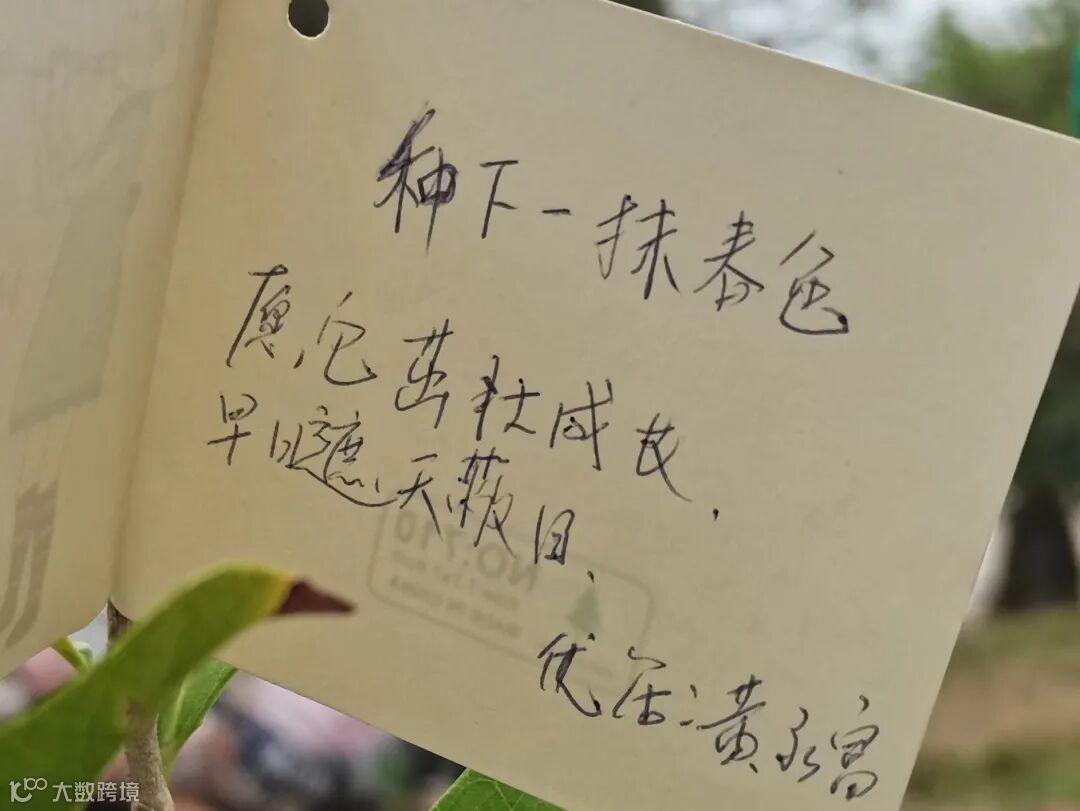 种下一抹春色
愿它茁壮成长,
早日遮天蔽日、
优居:黄永富
NO.710
大数跨境